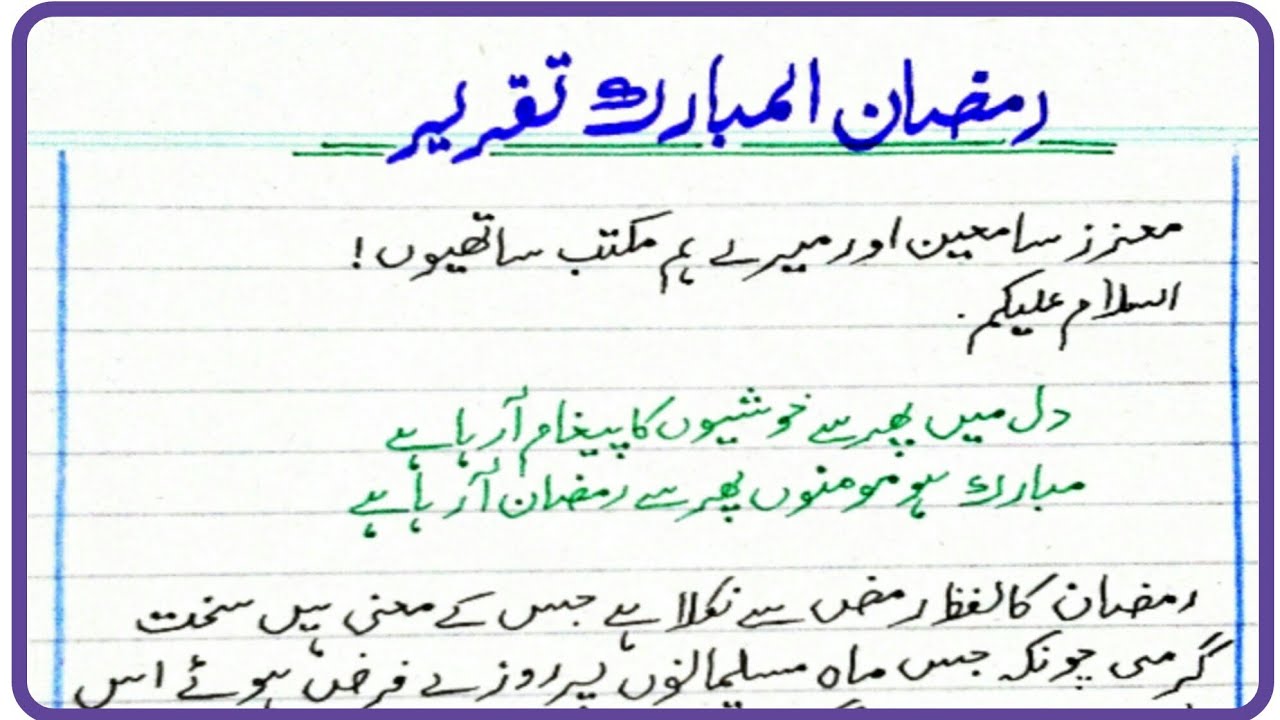 رمضان المبارک تقریر
معزز سامعین اور میرے ہم مکتب ساتھیوں!
السلام علیکم.
دل میں پھر سے خوشیوں کا پیغام آرہا ہے
مبارک ہو مومنوں پھر سے رمضان آرہا ہے
رمضان کا لفظ رمض سے نکلا ہے جس کے معنی ہیں سخت
گرمی چونکہ جس ماہ مسلمانوں پر روزے فرض ہوئے اس